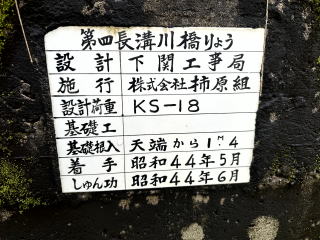 第四長溝川橋りょう
設計 下関工事局
施行 株式会社柿原組
設計荷重 KS-18
基礎工
基礎根入 天端から1M4
着手 昭和44年5月
しゅん功 昭和44年6月